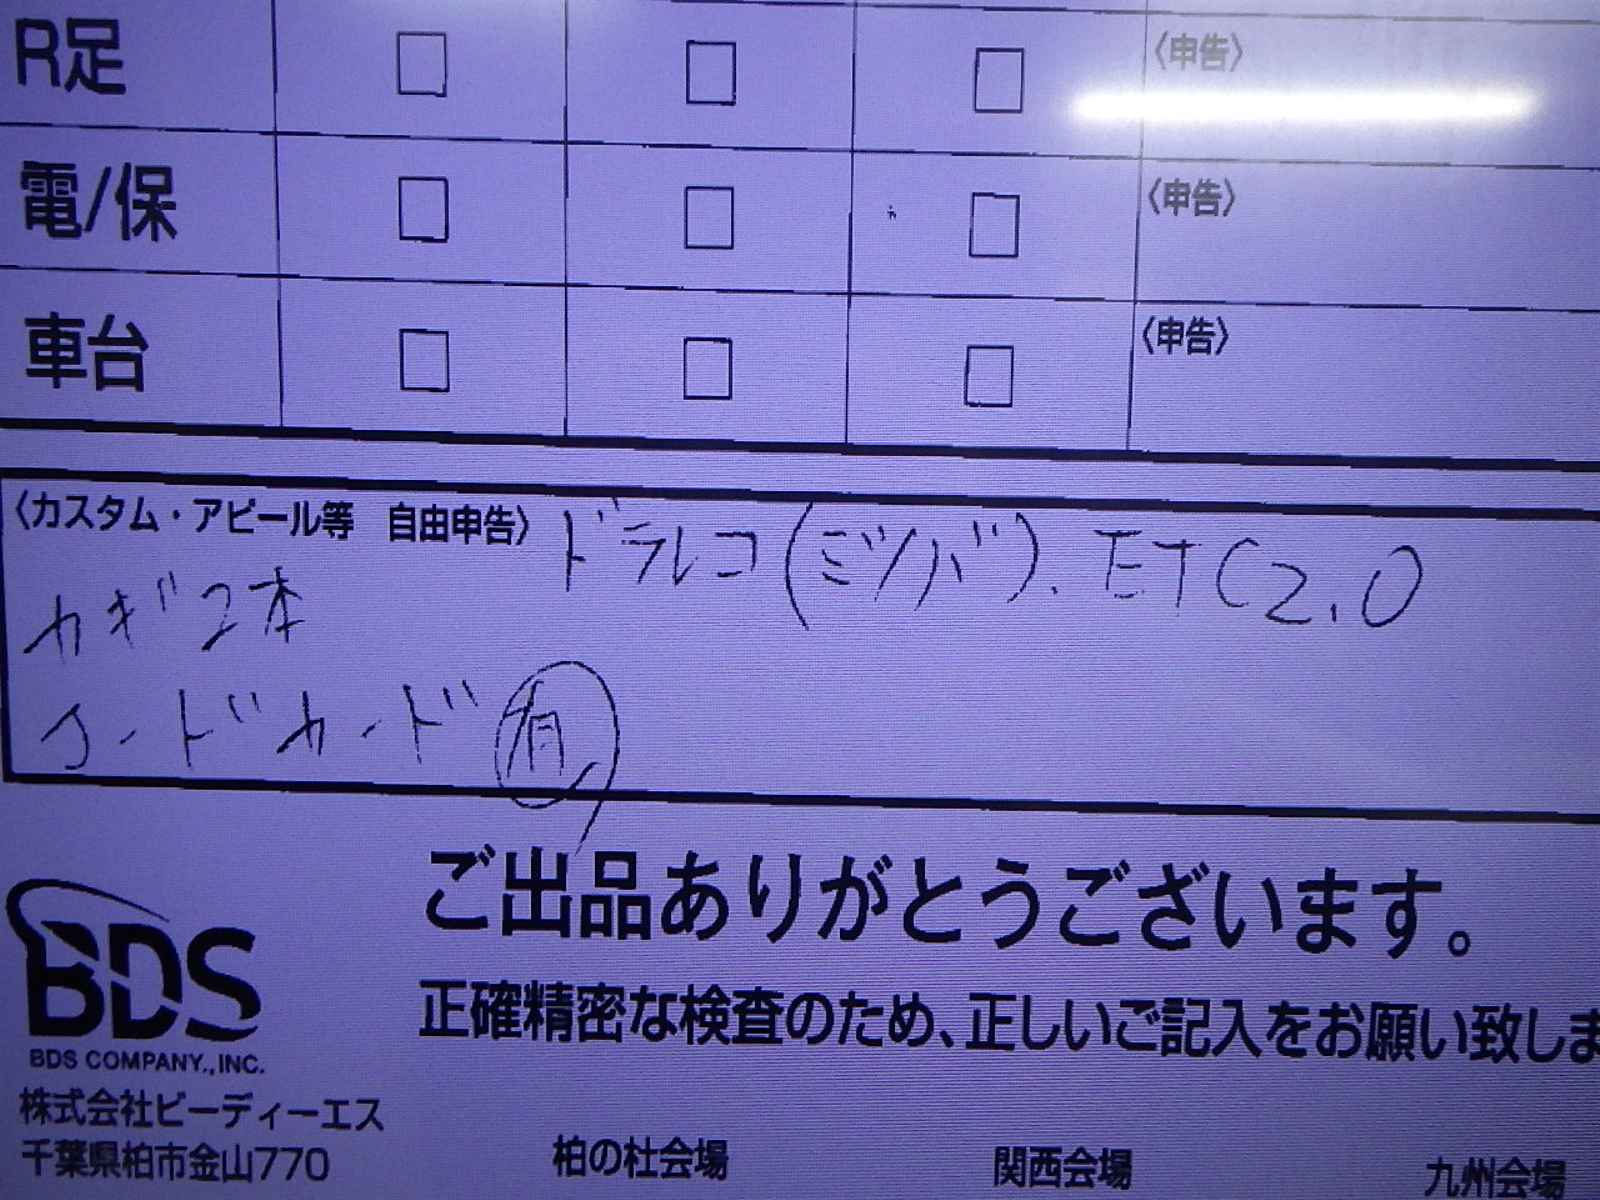 R足 □ □ □ 〈申告〉
電/保 □ □ □ 〈申告〉
車台 □ □ □ 〈申告〉
〈カスタム・アピール等　自由申告〉 ドラレコ(ミツバ). ETC2.0
カギ2本
コードカード有
ご出品ありがとうございます。
正確精密な検査のため、正しいご記入をお願い致しま
BDS
BDS COMPANY.,INC.
株式会社ビーディーエス
千葉県柏市金山770 柏の杜会場 関西会場 九州会場